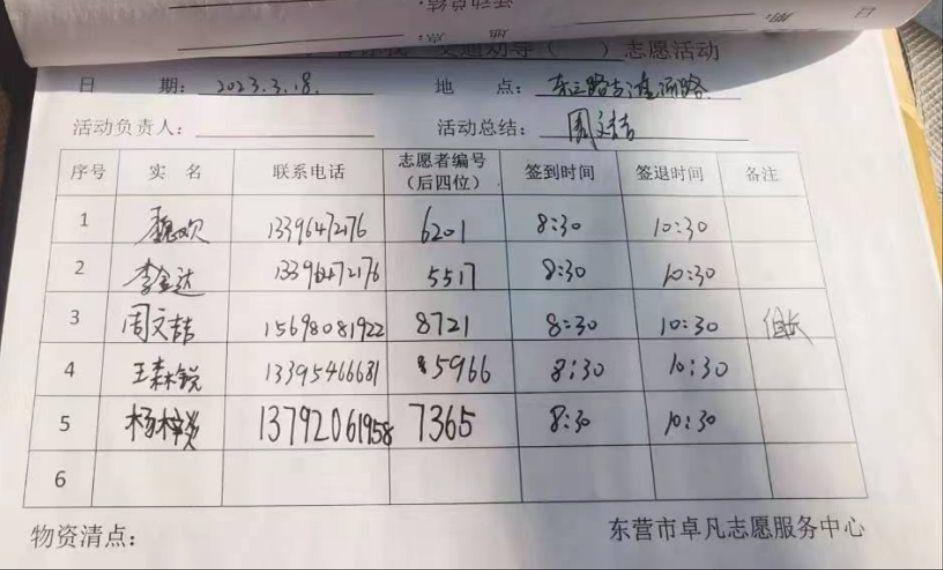 交通劝导（ ）志愿活动
日 期：2023.3.18. 地 点：东三路与淮河路
活动负责人： 活动总结：周文喆
序号 实 名 联系电话 志愿者编号（后四位） 签到时间 签退时间 备注
1 魏欢 13396472176 6201 8:30 10:30
2 李金达 13396472176 5517 8:30 10:30
3 周文喆 15698081922 8721 8:30 10:30
4 王森锐 13395466681 5966 8:30 10:30
5 13792061958 7365 8:30 10:30
6
物资清点： 东营市卓凡志愿服务中心